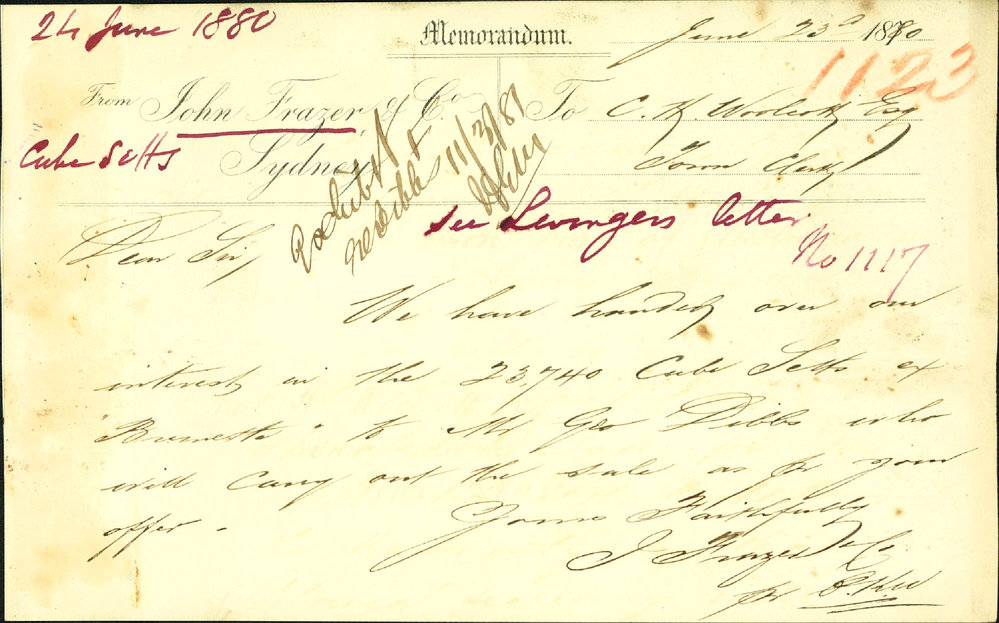 24 June 1880
Memorandum.
June 23d 1880
1123
From John Frazer & Co.
To C. H. Woolcott Esq
Cube Setts
Sydney
Town Clerk
11/3/81
see Levingers letter
No 1117
Dear Sir,
We have handed over our
interest in the 23,740 Cube Setts ex
"Burnett" to Mr Geo Dibbs who
will carry out the sale as pr your
offer.
Yours Faithfully
J Frazer & Co
pr